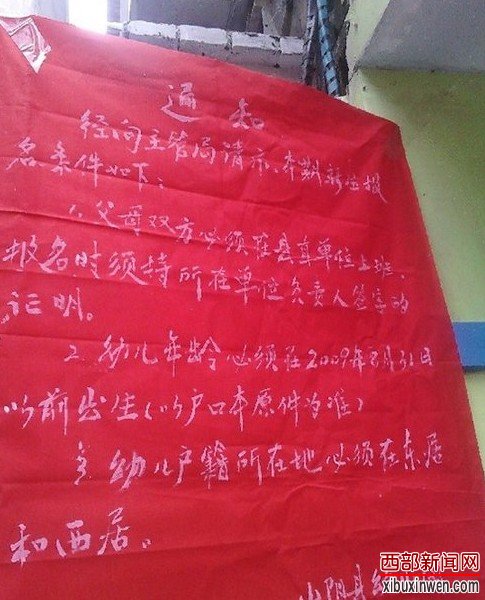 通知
经向主管局请示、本期新生报
名条件如下:
1、父母双方必须在县直单位上班、
报名时须持所在单位负责人签字的
证明。
2、幼儿年龄必须在2009年8月31日
以前出生(以户口本原件为准)
3、幼儿户籍所在地必须在东居
和西居。
山阴县
西部新闻网
xibuxinwen.com